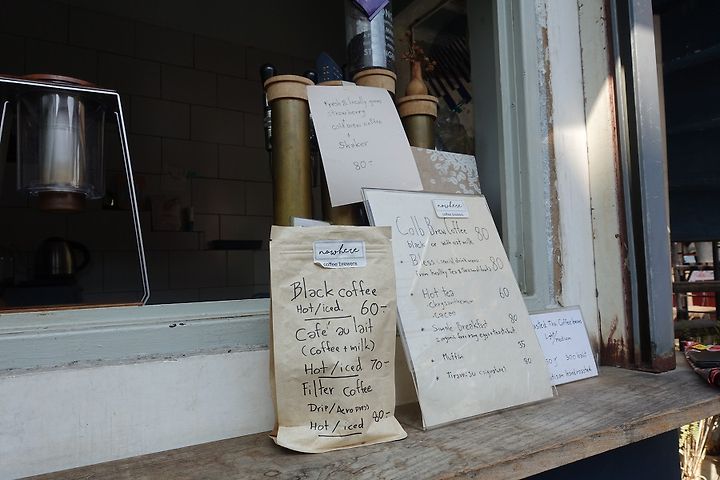 Fresh & locally grown
strawberry
+
cold brew coffee
+
Shaker
80.-
nowhere
coffee brewers
Black coffee
Hot/iced. 60.-
Café au lait
(coffee + milk)
Hot/iced 70-
Filter coffee
Drip/Aeropress
Hot/iced 80.-
nowhere
coffee brewers
Cold Brew Coffee 80
black
with oat milk
80
Hot tea 60
- Chrysanthemum
- cacao
Simple Breakfast 80
Muffin 55
Tiramisu (signature) 80
Coffee beans